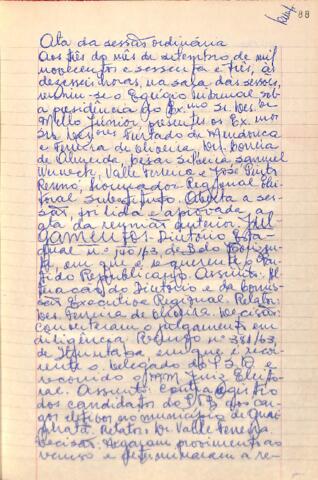 88
Ata da sessão ordinária
Aos três do mês de setembro de mil
novecentos e sessenta e três, às
dezesseis horas, na sala das sessões,
reuniu-se o Egrégio Tribunal, sob
a presidência do Exmo. Sr. Des.
Mello Júnior, presentes os Exmos.
Srs. Des. Furtado de Mendonça
e Ferreira de Oliveira, Drs. Corrêa
de Almeida, Samuel
Werneck, Valle Ferreira e José Pinto
Renno, Procurador Regional Elei-
toral Substituto. Aberta a ses-
são, foi lida e aprovada a
ata da reunião anterior. JUL
GAMENTOS. Diretório Esta-
dual nº 140/63, de Belo Horizon-
te, em que é requerente o Par-
tido Republicano. Assunto:
do Diretório e da Comis-
são Executiva Regional. Relator:
Des. Ferreira de Oliveira. Decisão:
Converteram o julgamento em
diligência. Recurso nº 381/63,
de em que é recor-
rente o Delegado do P.S.D. e
recorrido o MM. Juiz Eleito-
ral. Assunto: Contra registro
dos candidatos do aos car-
gos eletivos no município de
Relator: Dr. Valle Ferreira.
Decisão: Negaram provimento ao
recurso e determinaram a re-